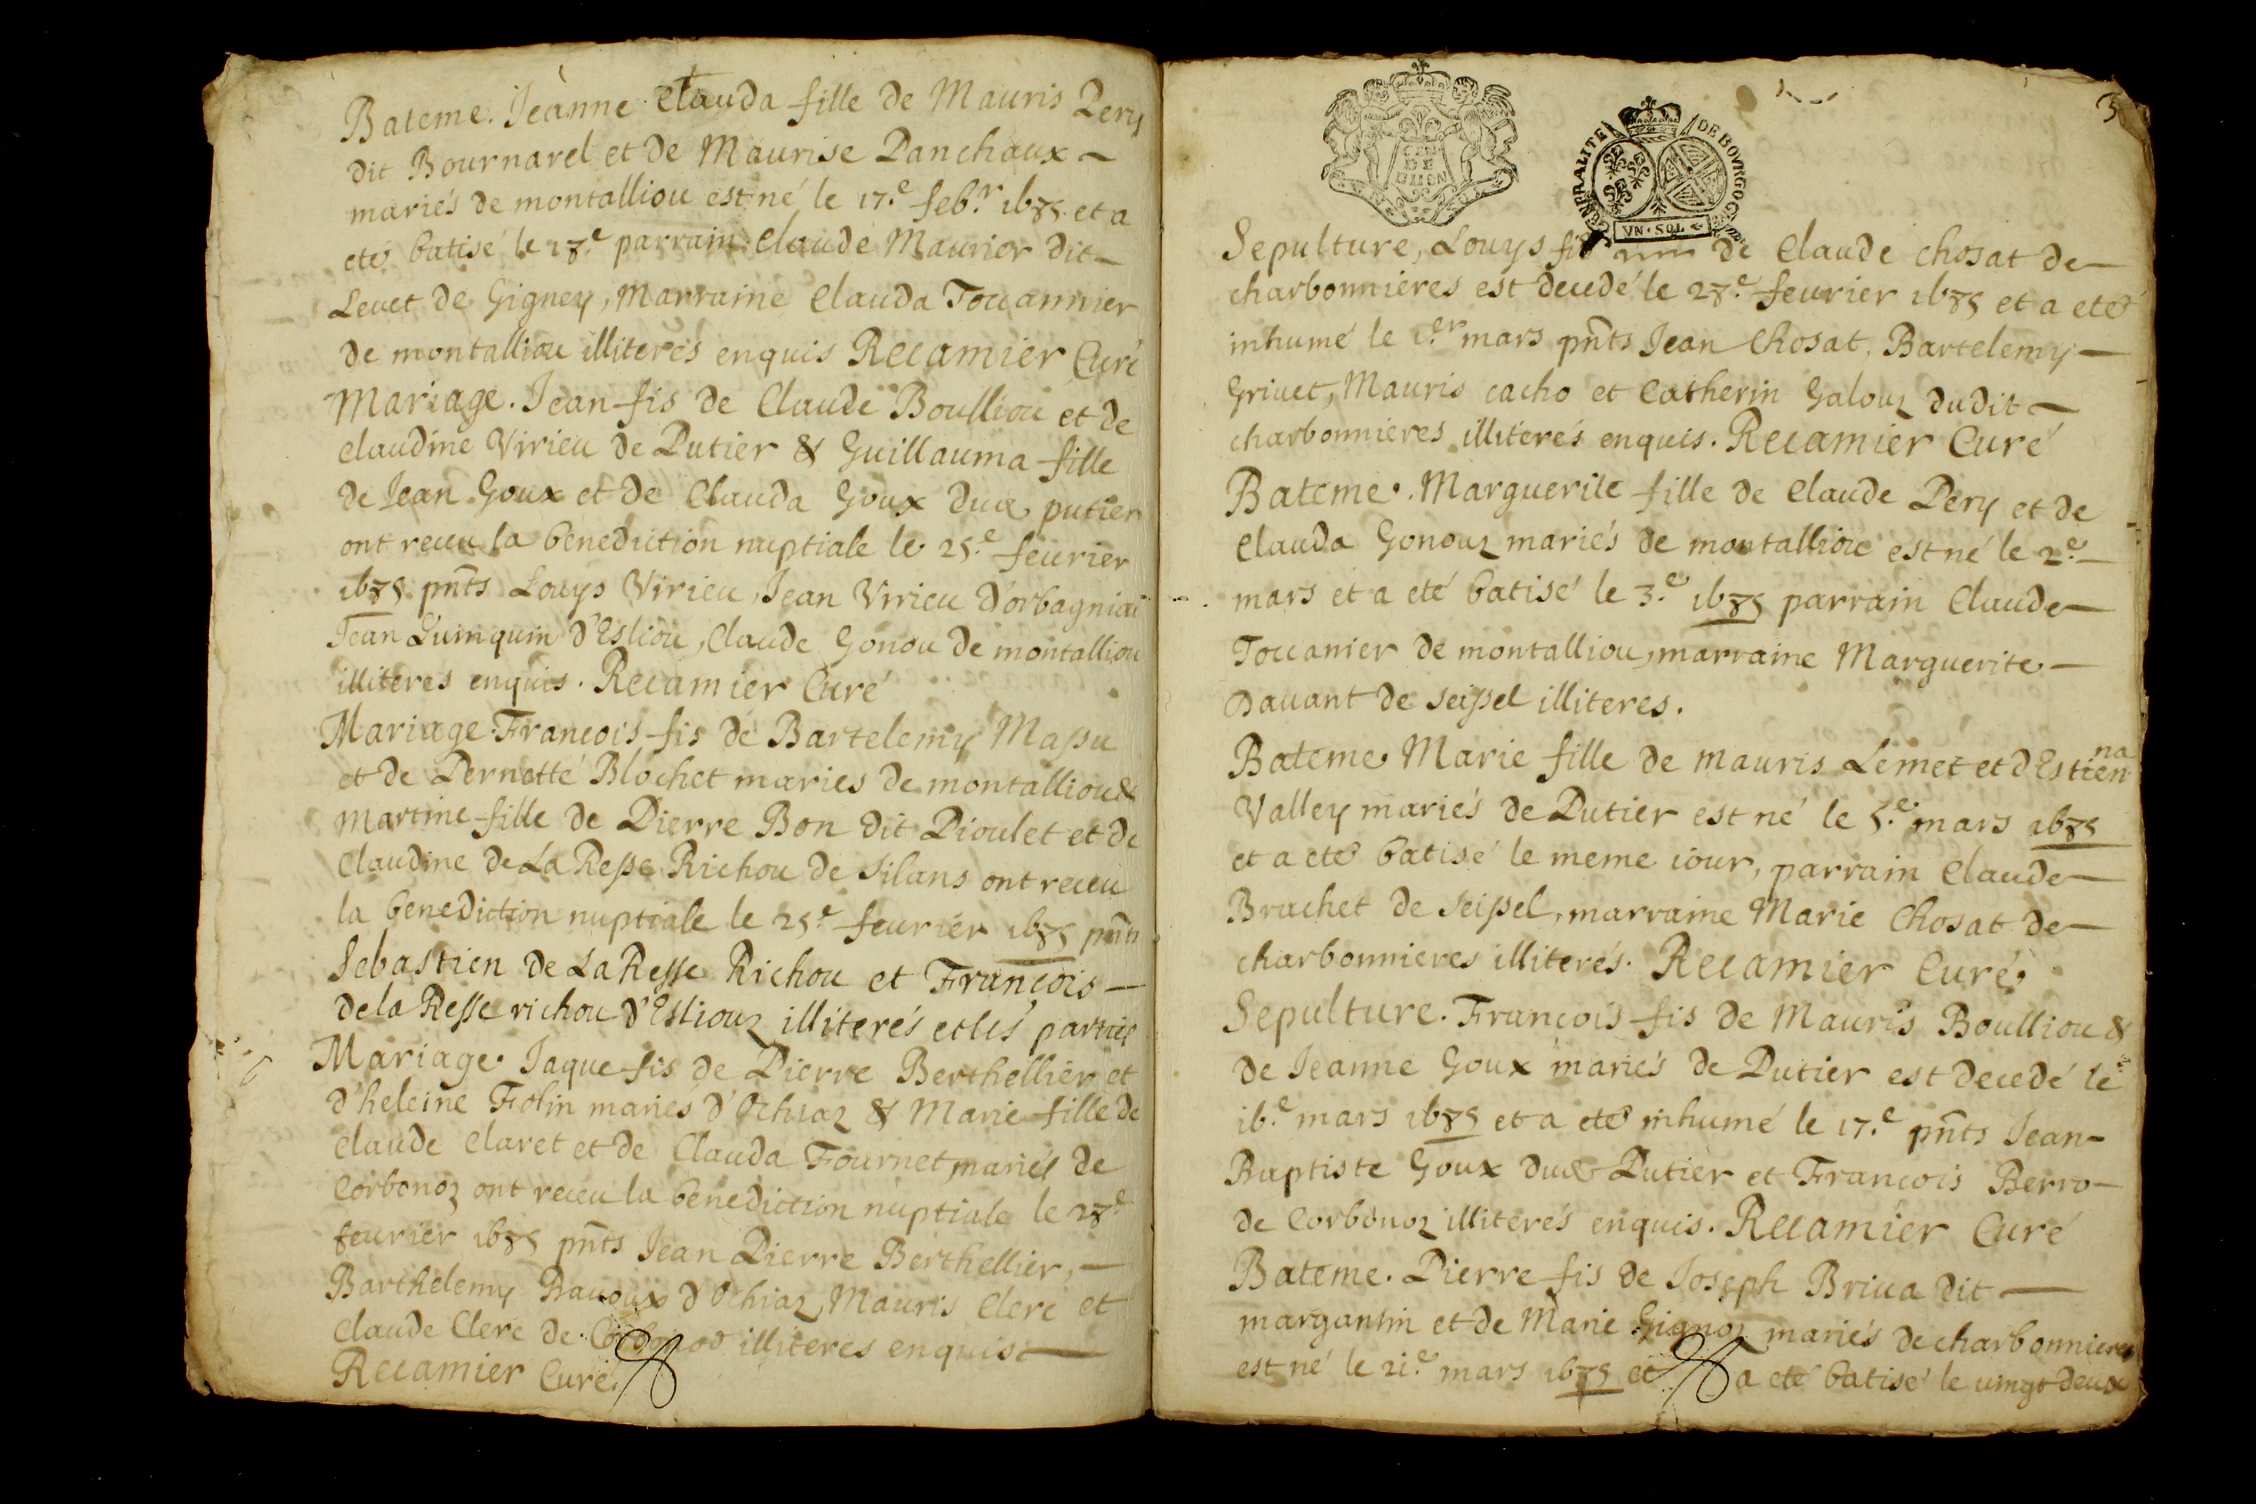 Bateme. Jeanne Clauda fille de Mauris Pery
dit Bournarel et de Maurise Panchaux ~
mariés de montalliou est né le 17.e feb.r 1685 et a
eté batisé le 18.e parrain Claude Maurier dit
Levet de Gigney, Marraine Clauda Toccannier
de montalliou illiterés enquis Recamier Curé
Mariage. Jean fis de Claude Boulliou et de
Claudine Virieu de Putier & Guillauma fille
de Jean Goux et de Clauda Goux putier
ont receu la benediction nuptiale le 25.e feurier
1685 pnts Louys Virieu, Jean Virieu
Jean d'Esliou, Claude Gonou de montalliou
illiteres enquis. Recamier Curé
Mariage. François fis de Bartelemy Massu
et de Pernette Blochet maries de montalliou &
Martine fille de Pierre Bon dit Pioulet et de
Claudine de La Resse Richou de silans ont receu
la benediction nuptiale le 25.e feurier 1685 pnts
Sebastien de La Resse Richou et François
de la Resse richou d'Esliouz illiterés et les
Mariage. Jaque fis de Pierre Berthellier et
d'heleine Folin mariés d'Ochiaz & Marie fille de
Claude Claret et de Clauda Fournet mariés de
Corbonoz ont receu la benediction nuptiale le 28.e
feurier 1685 pnts Jean Pierre Berthellier,
Barthelemy Ravoux d'Ochiaz, Mauris Clerc et
Claude Clerc de illiteres enquis
Recamier Curé.
3
GEN DE DIJON
GENERALITE DE BOVRGOGNE
VN SOL
Sepulture, Louys fis de Claude Chosat de
charbonnieres est decedé le 28.e feurier 1685 et a eté
inhumé le 1.er mars pnts Jean Chosat, Bartelemy
Grivet, Mauris cacho et Catherin Galouz dudit
charbonnieres illiterés enquis. Recamier Curé
Bateme. Marguerite fille de Claude Pery et de
Clauda Gonouz mariés de montalliou est né le 2.e
mars et a eté batisé le 3.e 1685 parrain Claude
Toccanier de montalliou, marraine Marguerite
Davant de seissel illiteres.
Bateme. Marie fille de mauris Lemet et d'Estienna
Valley mariés de Putier est né le 5.e mars 1685
et a eté batisé le meme iour, parrain Claude
Brachet de seissel, marraine Marie Chosat de
charbonnieres illiterés. Recamier Curé.
Sepulture. François fis de Mauris Boulliou &
de Jeanne Goux mariés de Putier est decedé le
16.e mars 1685 et a eté inhumé le 17.e pnts Jean-
Baptiste Goux Putier et François Berro
de Corbonoz illiterés enquis. Recamier Curé
Bateme. Pierre fis de Joseph Briva dit
margantin et de Marie Gignoz mariés de charbonnieres
est né le 21.e mars 1685 et a eté batisé le uingt deux